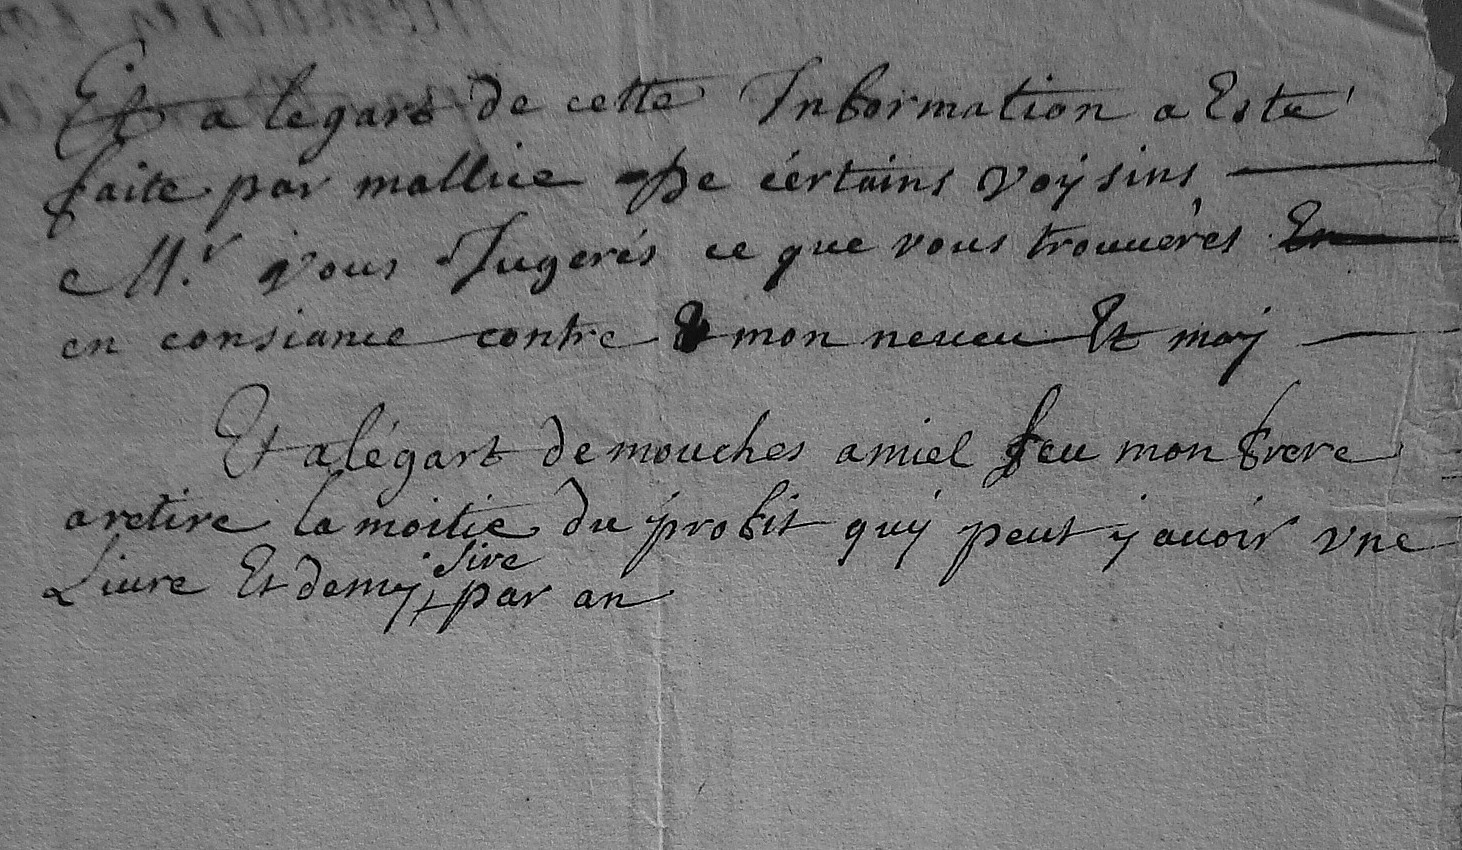 Et a legart de cette Information a Esté
faite par mallice De cértains voÿsins
Mr. vous Jugerés ce que vous trouuerés En
en consiance contre mon neueu Et moÿ
Et a légart de mouches amiel feu mon frere
a retire la moitie du profit quÿ peut ÿ auoir vne
Liure Et demÿ sire par an